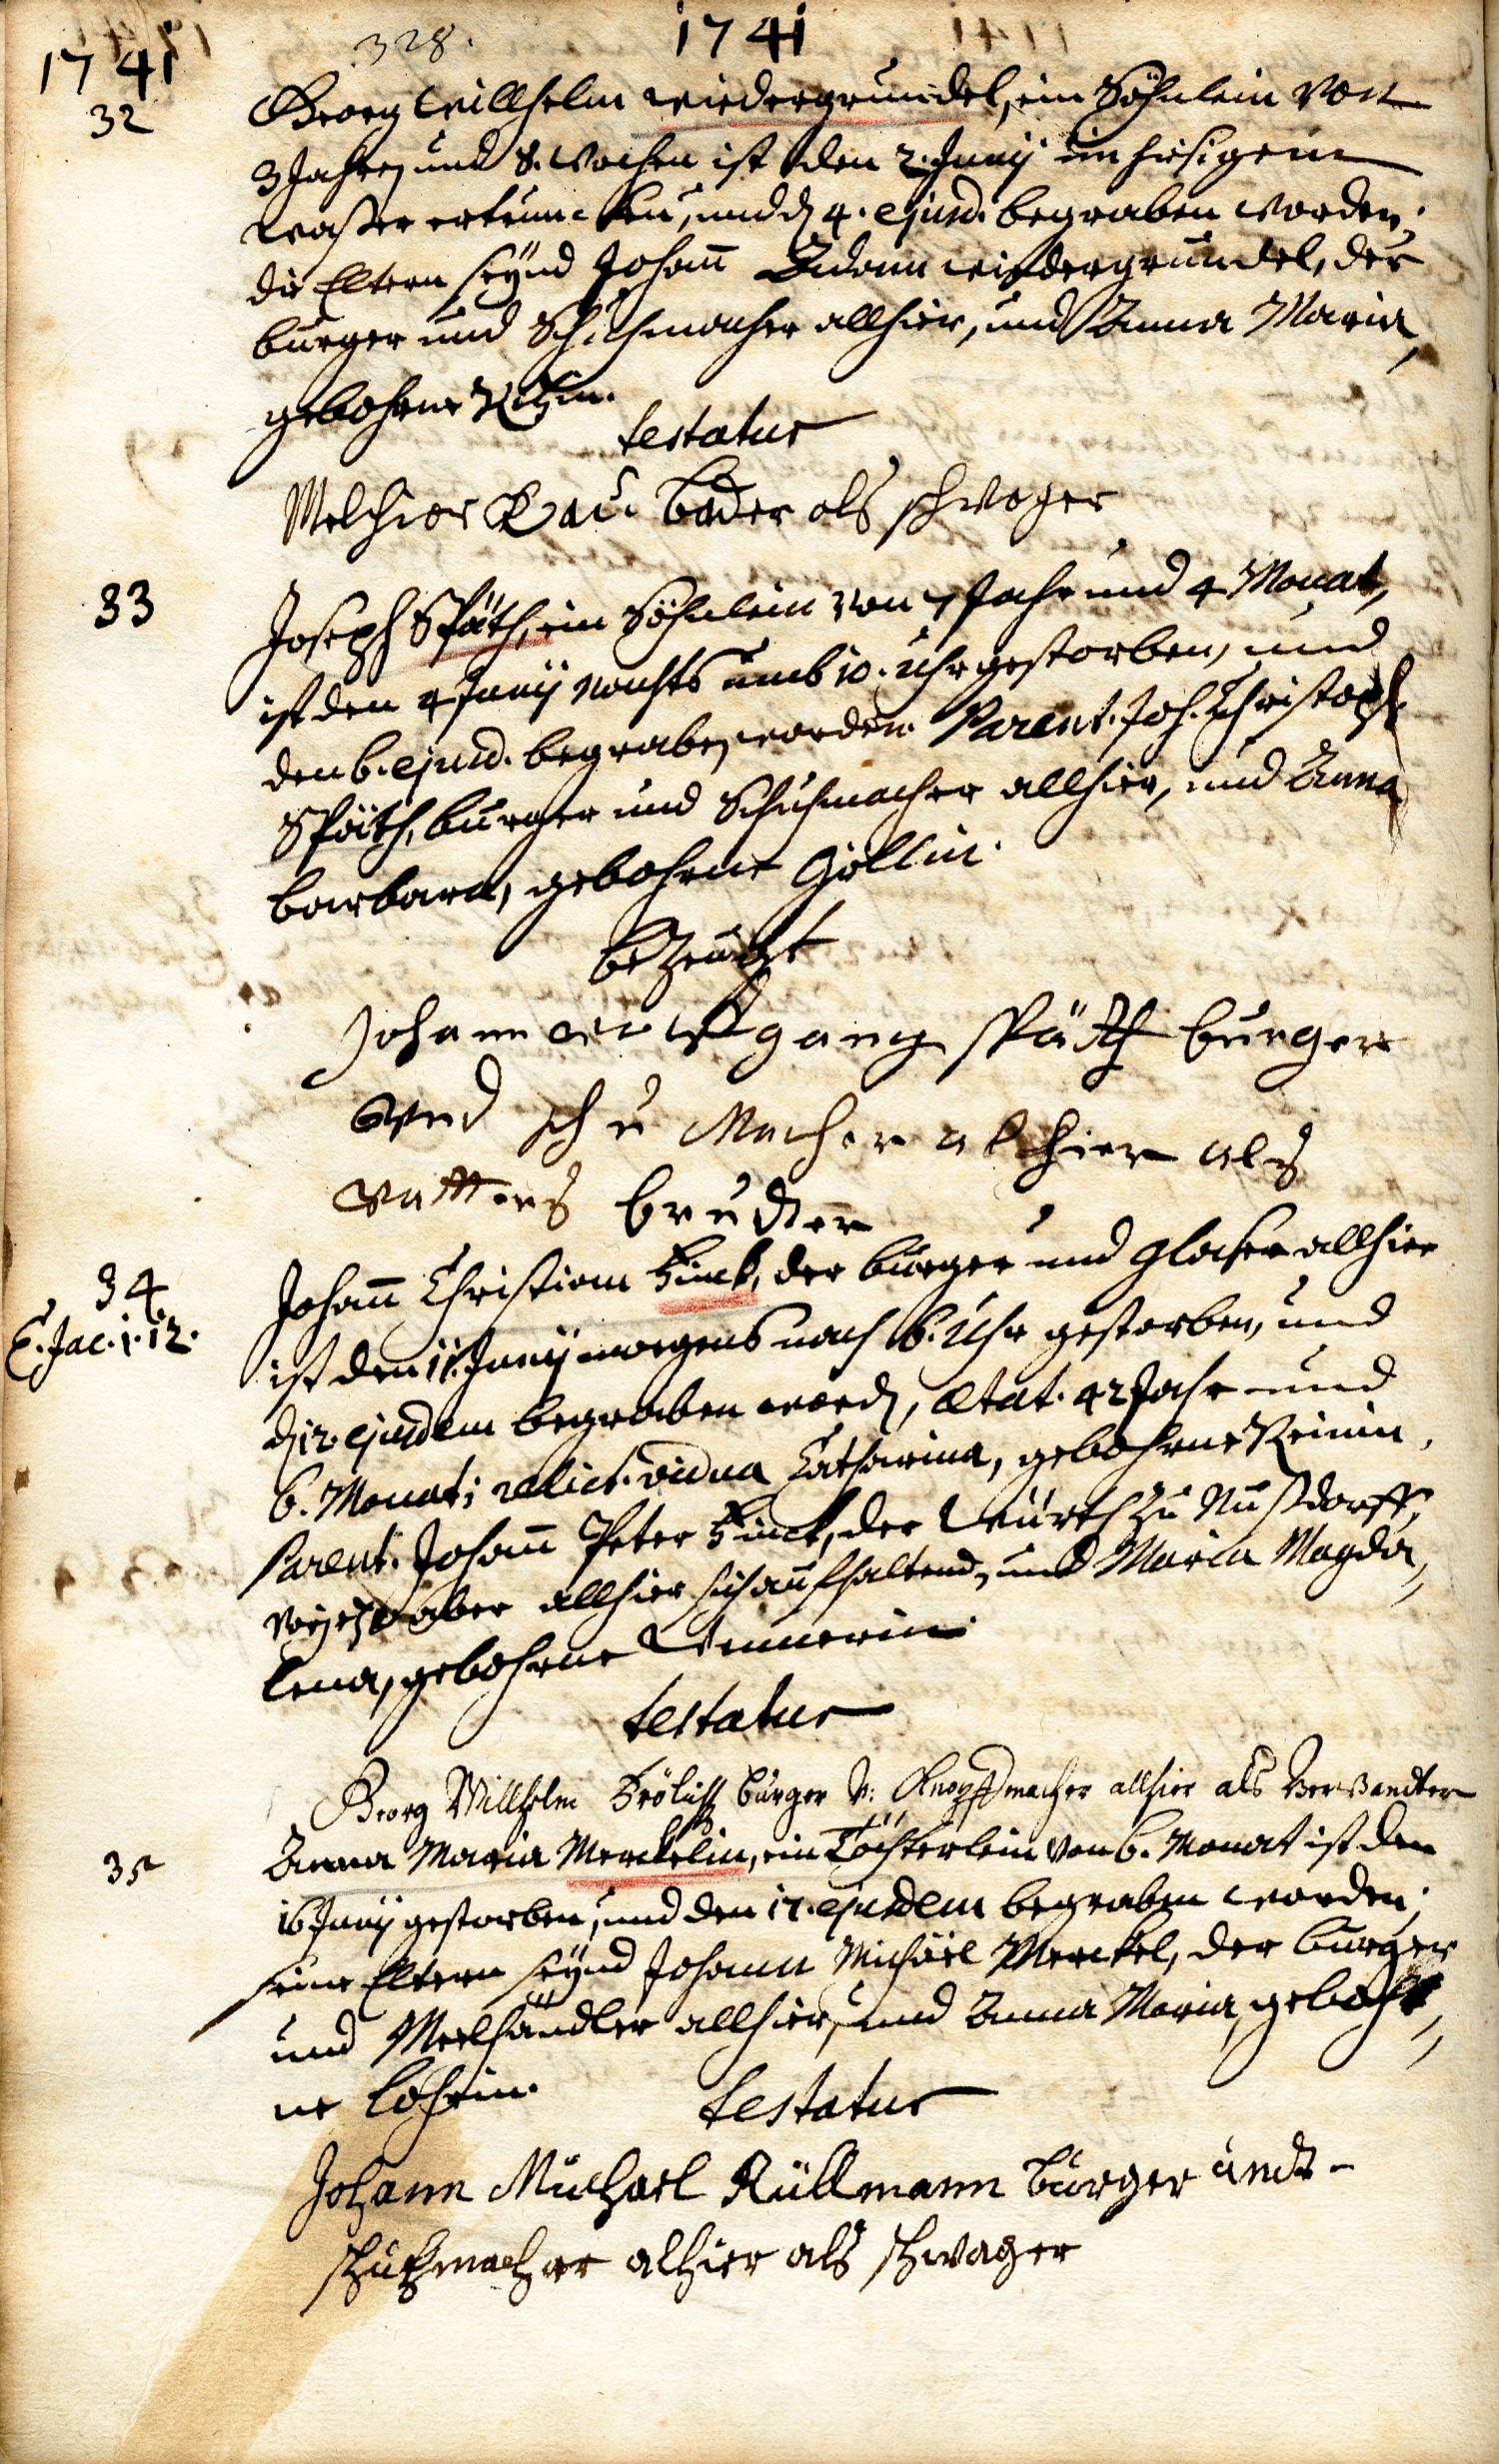 1741
328.
1741
32
Georg Willhelm Wiedergründel, ein Söhnlein von
3 Jahren und 8. Wochen ist den 2. Junij im hiesigem
Waßer ertruncken, und d. 4. ejusd. begraben worden;
die Eltern seynd Johann Adam Wiedergrundel, der
burger und Schuhmacher allhier, und Anna Maria,
gebohrne
testatur
Melchior Bader als schwager
33
Joseph Späth, ein Söhnlein von 7 Jahr und 4 Monat,
ist den 4 Junij nachts umb 10. Uhr gestorben, und
den 6. ejusd. begraben worden. Parent. Joh. Christoph
Späth, burger und Schuhmacher allhier, und Anna
barbara, gebohrne Göllin.
bezeugt
Johann Wolfgang Späth burger
und schu Macher alhier als
Vatters bruder
34
C. Jac. 1. 12.
Johann Christian Finck, der burger und glaser allhier
ist den 11. Junij morgens nach 6. Uhr gestorben, und
d. 12. ejusdem begraben word, Ætat. 42 Jahr und
6. Monat; relict. vidua Catharina, gebohrne Reinin,
Parent. Johann Peter Finck, der Würth zu Nußdorff,
aber allhier sich aufhaltend, und Maria Magda,
lena, gebohrne
testatur
Georg Willhelm Frölich burger u: Knopffmacher allhier als Verwandter
35
Anna Maria Merckelin, ein Töchterlein von 6. Monat ist den
16 Junij gestorben, und den 17. ejusdem begraben worden;
seine Eltern seynd Johann Michäel Merckel, der burger
und Meelhändler allhier, und Anna Maria, gebohr,
ne Lohrin.
testatur
Johann Michael Rüllmann burger undt
schuhmacher alhier als schwager